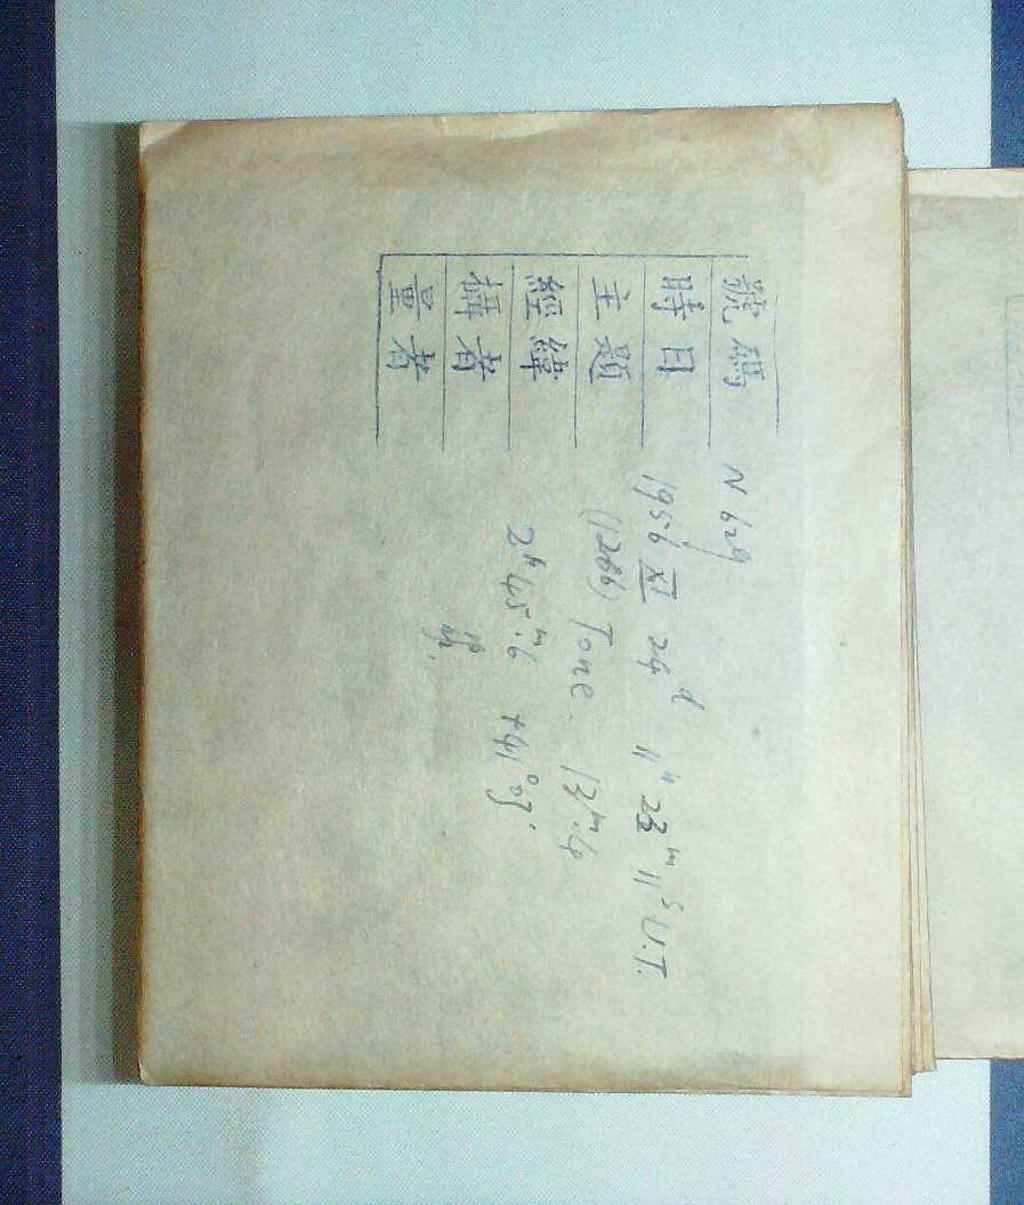 號碼 N 629
時日 1956 XI 24ᵈ 11ʰ 23ᵐ 11ˢ U.T.
主題 (1266) Tone. 13ᵐ.4
經緯 2ʰ45ᵐ.6 +41°03'
攝者
量者